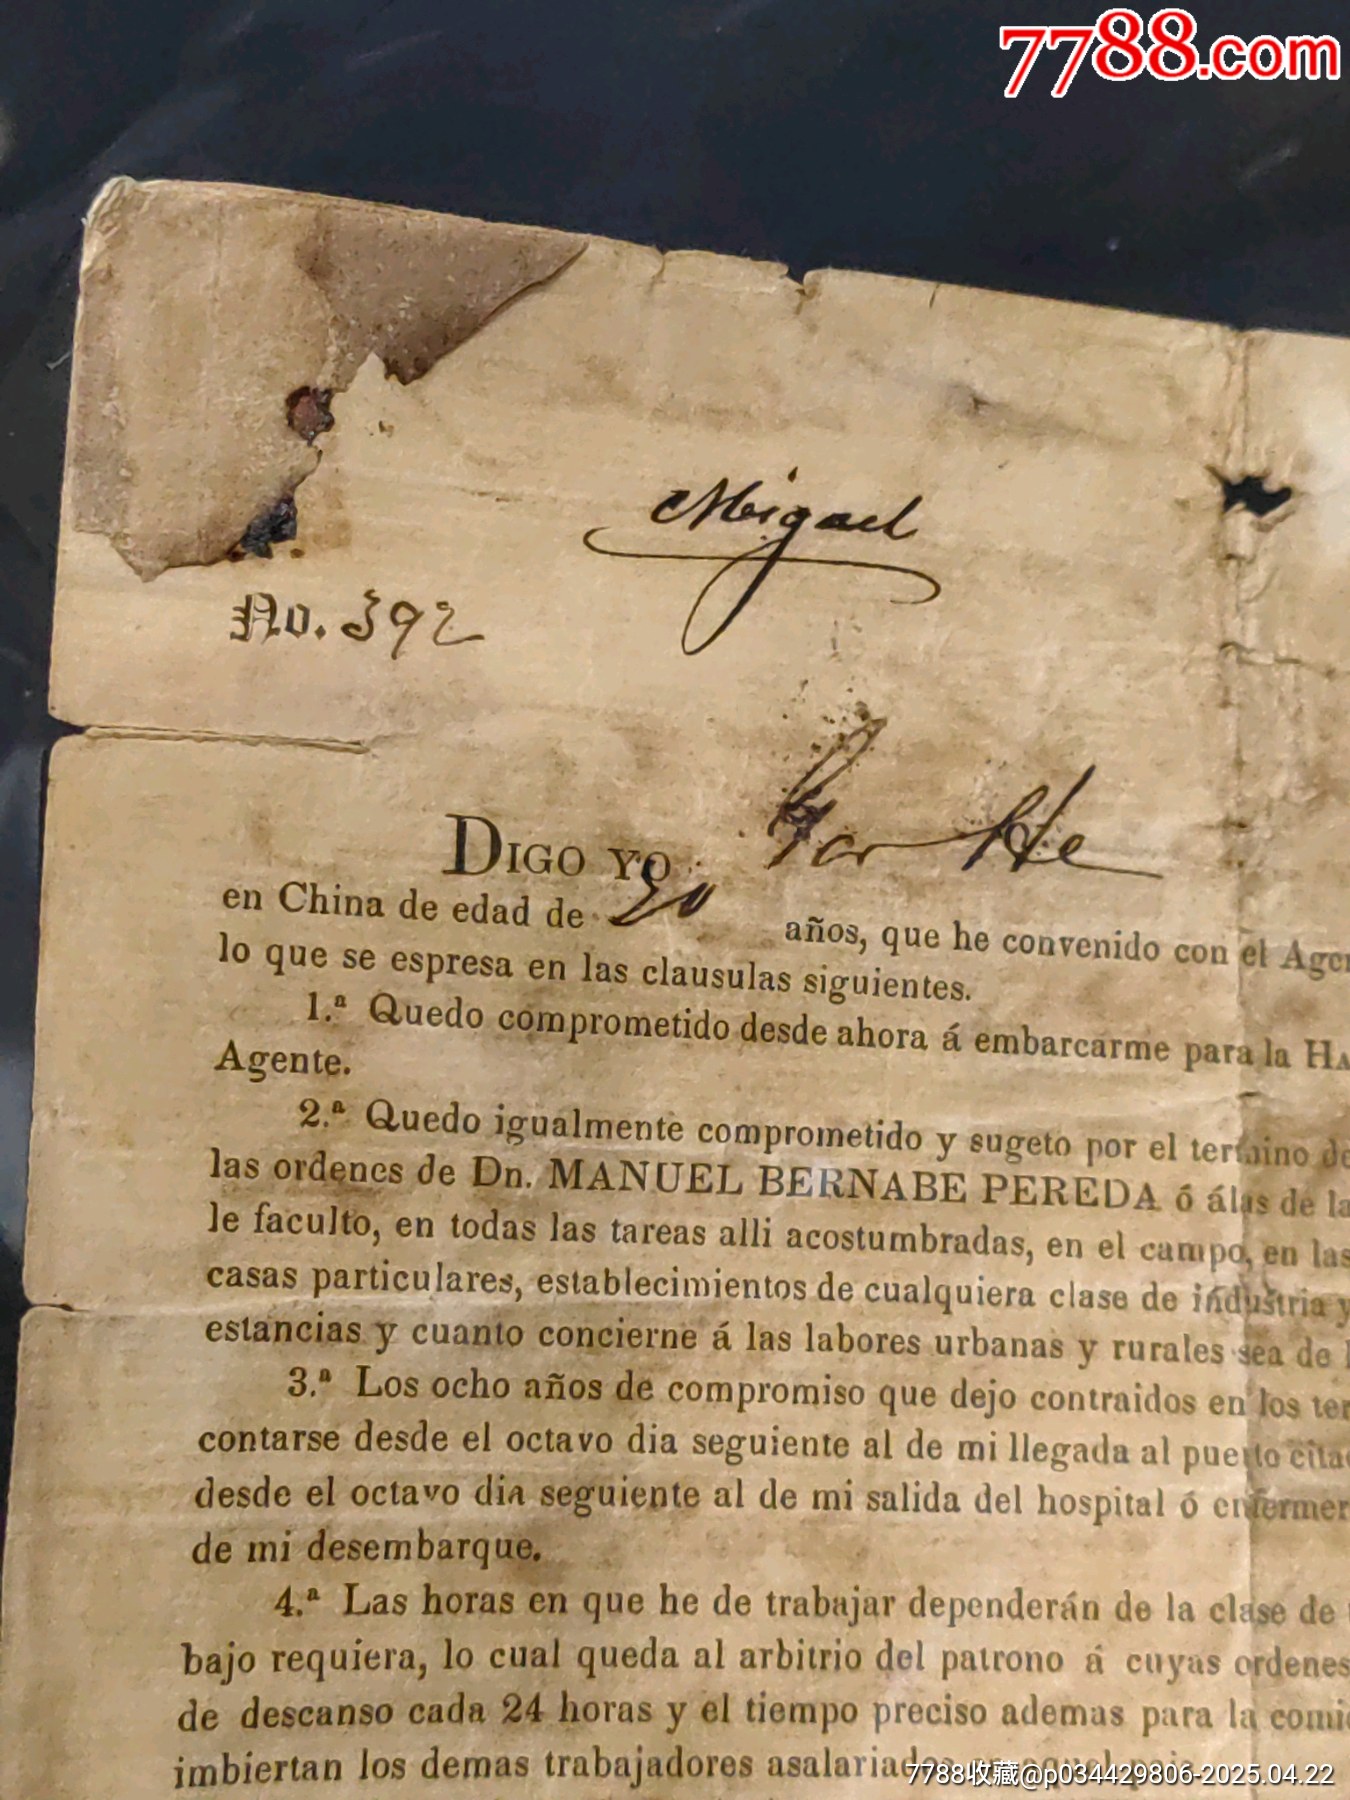 7788.com
Miguel
No. 392
DIGO YO
en China de edad de 20 años, que he convenido con el Agen
lo que se espresa en las clausulas siguientes.
1.ª Quedo comprometido desde ahora á embarcarme para la HA
Agente.
2.ª Quedo igualmente comprometido y sugeto por el termino de
las ordenes de Dn. MANUEL BERNABE PEREDA ó álas de la
le faculto, en todas las tareas alli acostumbradas, en el campo, en las
casas particulares, establecimientos de cualquiera clase de industria y
estancias y cuanto concierne á las labores urbanas y rurales sea de l
3.ª Los ocho años de compromiso que dejo contraidos en los ter
contarse desde el octavo dia seguiente al de mi llegada al puerto cita
desde el octavo dia seguiente al de mi salida del hospital ó enfermer
de mi desembarque.
4.ª Las horas en que he de trabajar dependerán de la clase de
bajo requiera, lo cual queda al arbitrio del patrono á cuyas ordenes
de descanso cada 24 horas y el tiempo preciso ademas para la comi
imbiertan los demas trabajadores asalariados en aquel pais
7788收藏@p034429806-2025.04.22